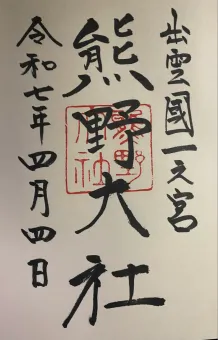 出雲國一之宮
熊野大社
熊野大社
令和七年四月四日